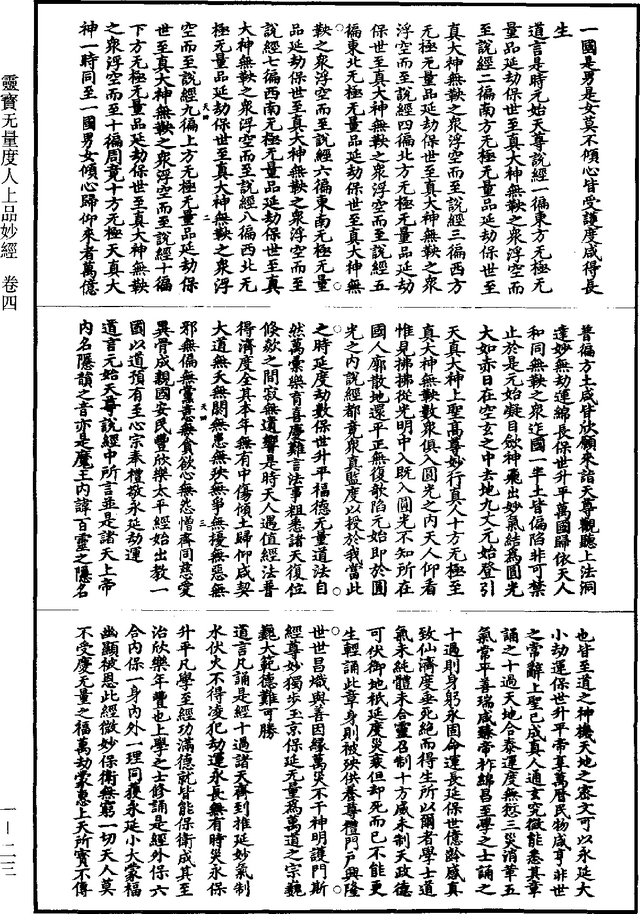 一國是男是女莫不傾心皆受護度咸得長
生
道言是時元始天尊說經一徧東方无極无
量品延劫保世至真大神無鞅之眾浮空而
至說經二徧南方无極无量品延劫保世至
真大神無鞅之眾浮空而至說經三徧西方
无極无量品延劫保世至真大神無鞅之眾
浮空而至說經四徧北方无極无量品延劫
保世至真大神無鞅之眾浮空而至說經五
徧東北无極无量品延劫保世至真大神無
鞅之眾浮空而至說經六徧東南无極无量
品延劫保世至真大神無鞅之眾浮空而至
說經七徧西南无極无量品延劫保世至真
大神無鞅之眾浮空而至說經八徧西北无
極无量品延劫保世至真大神無鞅之眾浮
空而至說經九徧上方无極无量品延劫保
世至真大神無鞅之眾浮空而至說經十徧
下方无極无量品延劫保世至真大神無鞅
之眾浮空而至十徧周竟十方无極天真大
神一時同至一國男女傾心歸仰來者萬億
普徧方土咸皆欣願來詣天尊觀聽上法洞
達妙無劫運綿長保世升平萬國歸依天人
和同無鞅之眾迮國一半土皆偏陷非可禁
止於是元始凝目斂神飛出妙氣結為圓光
大如赤日在空玄之中去地九丈元始登引
天真大神上聖高尊妙行真人十方无極至
真大神無鞅數眾俱入圓光之內天人仰看
惟見拂拂從光明中入既入圓光不知所在
國人廓散地還平正無復欹陷元始即於圓
光之內說經都竟眾真監度以授於我當此
之時延度劫數保世升平福德无量道法自
然萬彙樂育喜慶難言法事粗悉諸天復位
倏欻之間寂無遺響是時天人遇值經法普
得濟度全其本年無有中傷傾土歸仰咸契
大道無夭無閼無患無殃無爭無擾無惡無
邪無偏無黨恚心無貪欲心無怨憎齊同慈愛
異骨成親國安民豐欣樂太平經始出教一
國以道預有至心宗奉禮敬永延劫運
道言元始天尊說經中所言並是諸天上帝
內名隱韻之音亦是魔王內諱百靈之隱名
也皆至道之神機天地之密文可以永延大
小劫運保世升平帝享萬曆民物咸亨非世
之常辭上聖已成真人通玄究微能悉其章
誦之十過天地合泰運度無愆三災消革五
氣常平善瑞咸臻帝祚綿昌至學之士誦之
十過則身躬永固命運長延保世億齡感真
致仙濟度垂死絕而得生所以爾者學士道
氣未純體未合靈召制十方威未制天政德
可伏御地祇延度災衰但却死而已不能更
生輕誦此章身則被殃供養尊禮門戶興隆
世世昌熾與善因緣萬災不干神明護門斯
經尊妙獨步玉京保延无量為萬道之宗巍
巍大範德難可勝
道言凡誦是經十過諸天齊到推延妙氣制
水伏火不得凌犯劫運永長無有時災永保
升平凡學至經功滿德就皆能保衛成其至
治欣樂年豐也上學之士修誦是經外保六
合內保一身內外一理同獲永延小大蒙福
幽顯被恩此經微妙保衛無窮一切天人莫
不受慶无量之福萬劫蒙惠上天所寶不傳
天四
二
天四
三
靈寶无量度人上品妙經 卷四
一—二三